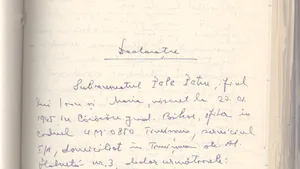 Declarație
Subsemnatul Pele Petru, fiul
lui Ioan și Maria, născut la 27.01.
1945 în jud. Bihor, ofițer în
cadrul U.M. 0850 Timișoara, serviciul
domiciliat în Timișoara str. Al.
nr. 3, declar următoarele: